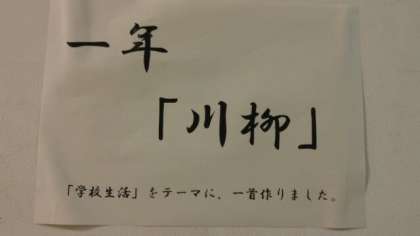 一年
「川柳」
「学校生活」をテーマに、一首作りました。